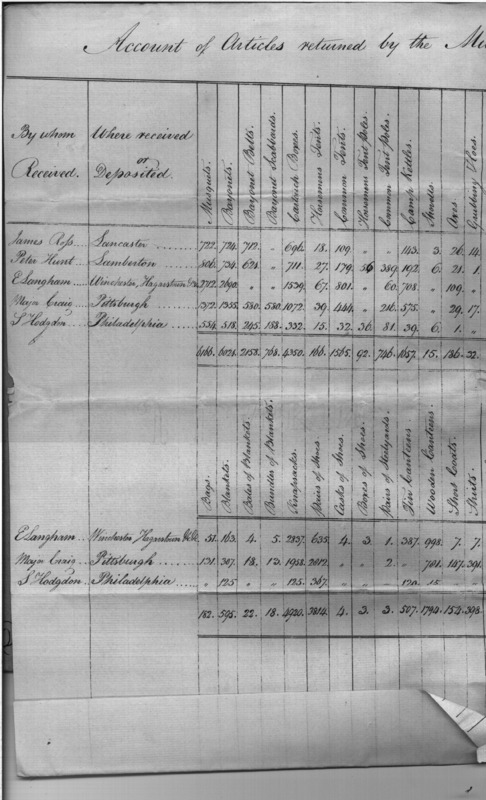 Account of Articles returned by the
By whom Received. Where received or Deposited. Musquets. Bayonets. Bayonet Belts. Bayonet Scabbards. Cartouch Boxes. Horsemens Tents. Common Tents. Horsemens Tent Poles. Common Tent Poles. Camp Kettles. Shovels. Axes. Grubbing Hoes.
James Ross Lancaster 722. 724. 712. " 696. 18. 109. " " 143. 3. 26. 14.
Peter Hunt Lamberton 806. 734. 621. " 711. 27. 179. 56 389. 192. 6. 21. 1.
E Langham Winchester, Hagerstown &c 2712. 2690. " " 1539. 67. 801. " 60. 708. " 109. "
Major Craig Pittsburgh 1372. 1355. 580. 580. 1072. 39. 444. " 216. 575. " 29. 17.
S Hodgdon Philadelphia 554. 518. 245. 188. 332. 15. 32. 36. 81. 39. 6. 1. "
6166. 6021. 2158. 768. 4350. 166. 1565. 92. 746. 1657. 15. 186. 32.
Bags. Blankets. Bales of Blankets. Bundles of Blankets. Knapsacks. Pairs of Shoes. Casks of Shoes. Boxes of Shoes. Pairs of Steelyards. Tin Canteens. Wooden Canteens. Short Coats. Shirts.
E Langham Winchester Hagerstown &c 51. 163. 4. 5. 2837. 635. 4. 3. 1. 387. 998. 7. 7.
Major Craig Pittsburgh 131. 307. 18. 13. 1958. 2812. " " 2. " 781. 147. 391.
S Hodgdon Philadelphia " 125 " " 125. 367. " " " 120. 15
182. 595. 22. 18. 4920. 3814. 4. 3. 3. 507. 1794. 154. 398.